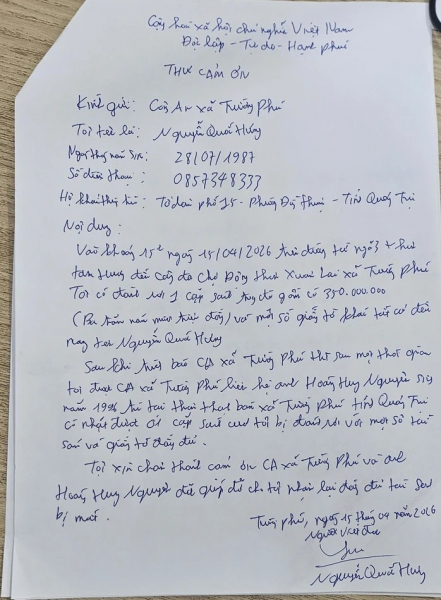 Cộng hòa xã hội chủ nghĩa Việt Nam
Độc lập - Tự do - Hạnh phúc
THƯ CẢM ƠN
Kính gửi: Công An xã Trường Phú
Tôi tên là: Nguyễn Quốc Hưng
Ngày tháng năm sinh: 28/07/1987
Số điện thoại: 0857348333
Hộ khẩu thường trú: Tổ dân phố 15 - Phường Đồng Thuận - Tỉnh Quảng Trị
Nội dung:
Vào khoảng 15h ngày 15/04/2026 trên đường từ ngã 3
đến chợ Động thôn Xuân Lai xã Trường Phú
Tôi có đánh rơi 1 cặp sách trong đó gồm có 350.000.000
(Ba trăm năm mươi triệu đồng) và một số giấy tờ khác
tên Nguyễn Quốc Hưng
Sau khi trình báo CA xã Trường Phú thì sau một thời gian
tôi được CA xã Trường Phú liên hệ anh Hoàng Huy Nguyên sinh
năm trú tại thôn xã Trường Phú tỉnh Quảng Trị
có nhặt được cặp sách tôi bị đánh rơi với một số tài
sản và giấy tờ đầy đủ.
Tôi xin chân thành cảm ơn CA xã Trường Phú và anh
Hoàng Huy Nguyên đã giúp đỡ cho tôi nhận lại đầy đủ tài sản
bị mất.
Trường Phú, ngày 15 tháng 04 năm 2026
Người viết đơn
Nguyễn Quốc Hưng